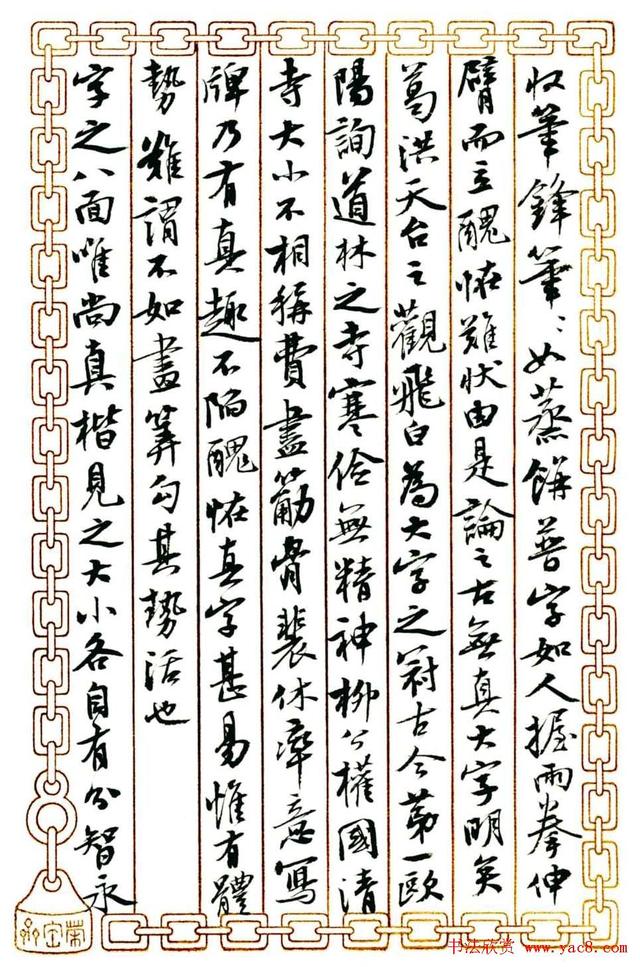 收筆鋒筆〻如蒸餅普字如人握兩拳伸
臂而立醜怪難狀由是論之古無真大字明矣
葛洪天台之觀飛白為大字之冠古今第一歐
陽詢道林之寺寒儉無精神柳公權國清
寺大小不相稱費盡筋骨裴休率意寫
牌乃有真趣不陷醜怪真字甚易惟有體
勢難謂不如畫筭勻其勢活也
字之八面唯尚真楷見之大小各自有分智永
书法欣赏 www.yac8.com